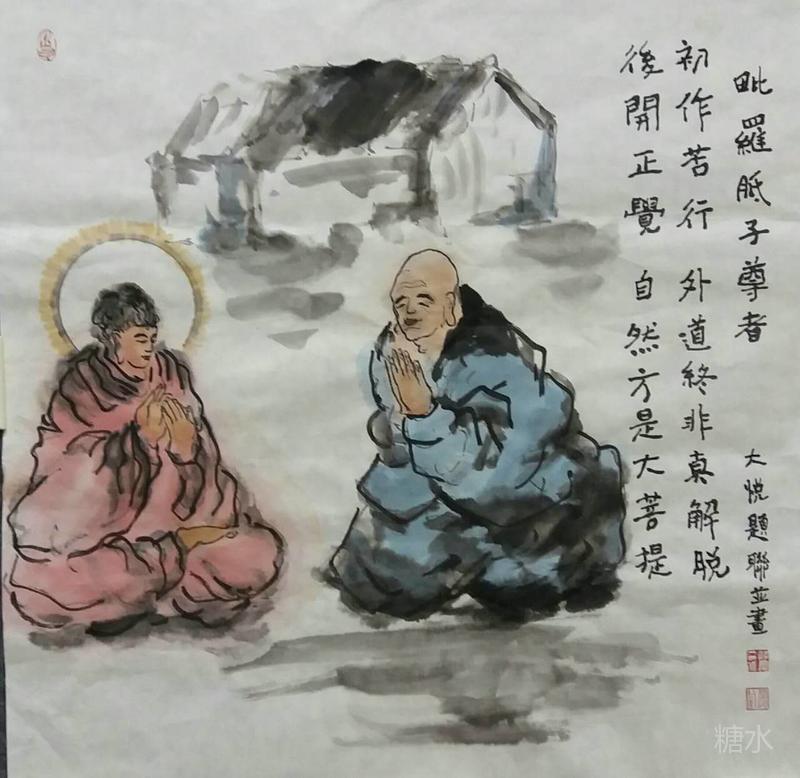 毗羅胝子尊者
大悅題聯並畫
初作苦行外道終非真解脫
後開正覺自然方是大菩提
糖水